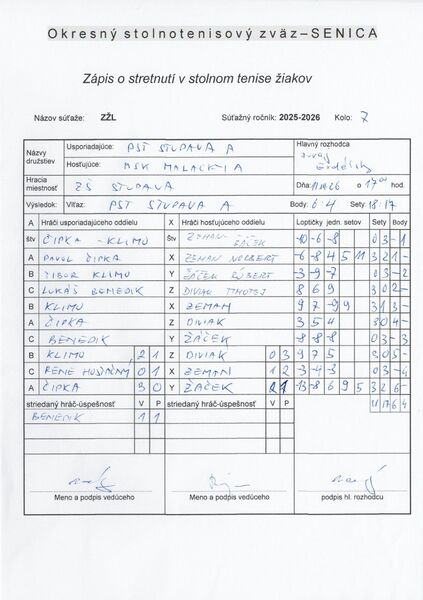 Okresný stolnotenisový zväz–SENICA
Zápis o stretnutí v stolnom tenise žiakov
Názov súťaže: ZŽL Súťažný ročník: 2025-2026 Kolo: 7
Názvy družstiev Usporiadajúce: PST STUPAVA A Hlavný rozhodca
Hosťujúce: MSK MALACKY A
Hracia miestnosť ZŠ STUPAVA Dňa: o 17 00 hod.
Výsledok: Víťaz: PST STUPAVA A Body: 6:4 Sety: 18:17
A Hráči usporiadajúceho oddielu X Hráči hosťujúceho oddielu Loptičky jedn. setov Sety Body
štv ČIPKA - KLIMO štv ZEMAN ŽÁČEK -10 -6 -8 0 3 -1
A PAVOL ČIPKA X ZEMAN NORBERT -6 -8 4 5 11 3 2 1 -
B TIBOR KLIMO Y ŽÁČEK RÓBERT -3 -9 -7 0 3 -2
C LUKÁŠ BENEDIK Z DIVIAK TIMOTEJ 8 6 9 3 0 2 -
B KLIMO X ZEMAN 9 7 -9 9 3 1 3 -
A ČIPKA Z DIVIAK 3 5 4 3 0 4 -
C BENEDIK Y ŽÁČEK -8 -8 -8 0 3 -3
B KLIMO 2 1 Z DIVIAK 0 3 9 7 5 3 0 5 -
C RENE 0 1 X ZEMAN 1 2 -3 -4 -3 0 3 -4
A ČIPKA 3 0 Y ŽÁČEK 2 1 -13 -8 6 9 5 3 2 6 -
striedaný hráč-úspešnosť V P striedaný hráč-úspešnosť V P 17 6 4
BENEDIK 1 1
Meno a podpis vedúceho Meno a podpis vedúceho podpis hl. rozhodcu